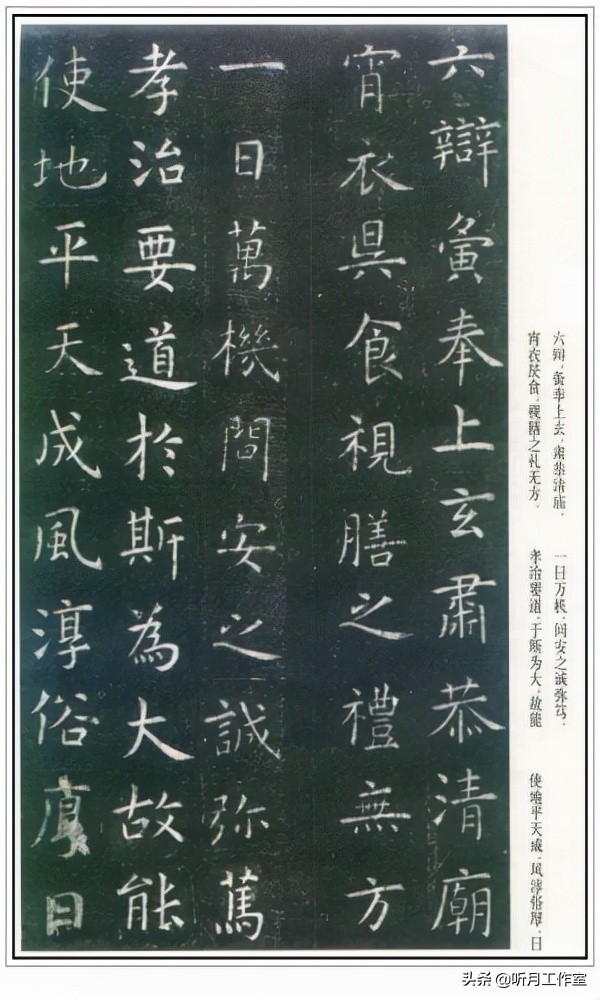 六辯夤奉上玄肅恭清廟
宵衣昃食視膳之禮無方
一日萬機間安之誠弥篤
孝治要道於斯為大故能
使地平天成風淳俗厚日
六辩，夤奉上玄，肃恭清庙，
宵衣昃食，视膳之礼无方。
一日万机，问安之诚弥笃，
孝治要道，于斯为大。故能
使地平天成，风淳俗厚，日
头条 @听月工作室